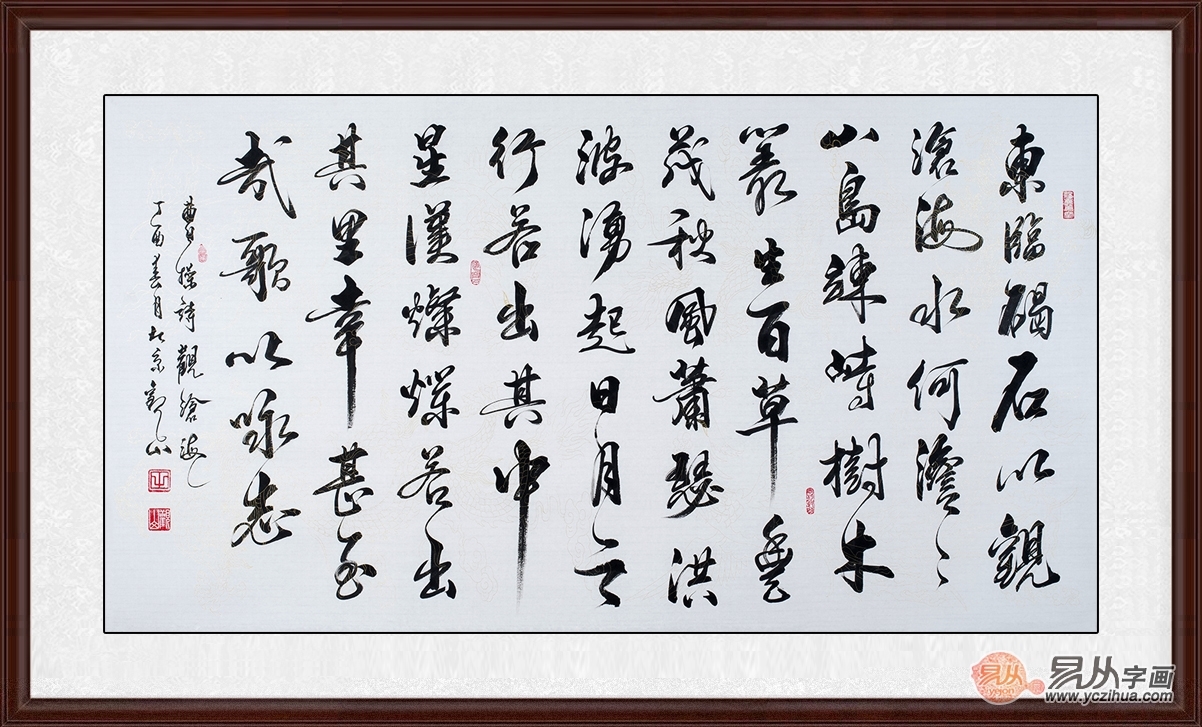 東臨碣石以觀
滄海水何澹〻
山島竦峙樹木
叢生百草豐
茂秋風蕭瑟洪
波湧起日月之
行若出其中
星漢燦爛若出
其里幸甚至
哉歌以咏志
曹操詩觀滄海
丁酉春月北京觀山
易从
易从字画
www.yczihua.com